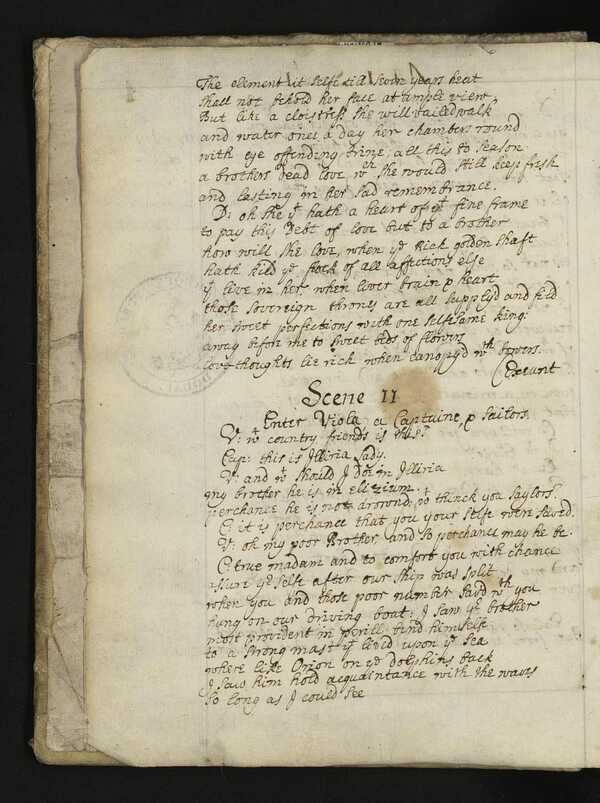 The element it selfe till seven years heat
shall not behold her face at ample view
But like a cloistress she will vailed walk
and water once a day her chambers round
with eye offending brine, all this to season
a brothers dead love wch she would still keep fresh
and lasting in her sad remembrance.
D: oh she yt hath a heart of yt fine frame
to pay this debt of love but to a brother
how will she love, when ye rich golden shaft
hath kild ye flock of all affections else
yt live in her when liver brain & heart
those soveraign thrones are all supplyd and fild
her sweet perfections with one selfesame king:
away before me to sweet beds of flowers
love thoughts lie rich when canopy'd wth bowers.
(Exeunt
Scene II
Enter Viola a Captaine, & Sailors.
V: wt country friends is this?
Cap: this is Illiria Lady.
V: and wt should I doe in Illiria
my brother he is in elizium.
perchance he is not drownd, wt thinck you saylors?
C: it is perchance that you your selfe were saved.
V: oh my poor Brother and so perchance may he be.
C: true madam and to comfort you with chance
assure yr selfe after our ship was split
when you and those poor number savd wth you
hung on our driving boat; I saw yr brother
most provident in perill bind himselfe
to a strong mast yt livd upon ye sea
where like Orion on ye dolphins back
I saw him hold acquaintance with the waves
so long as I could see